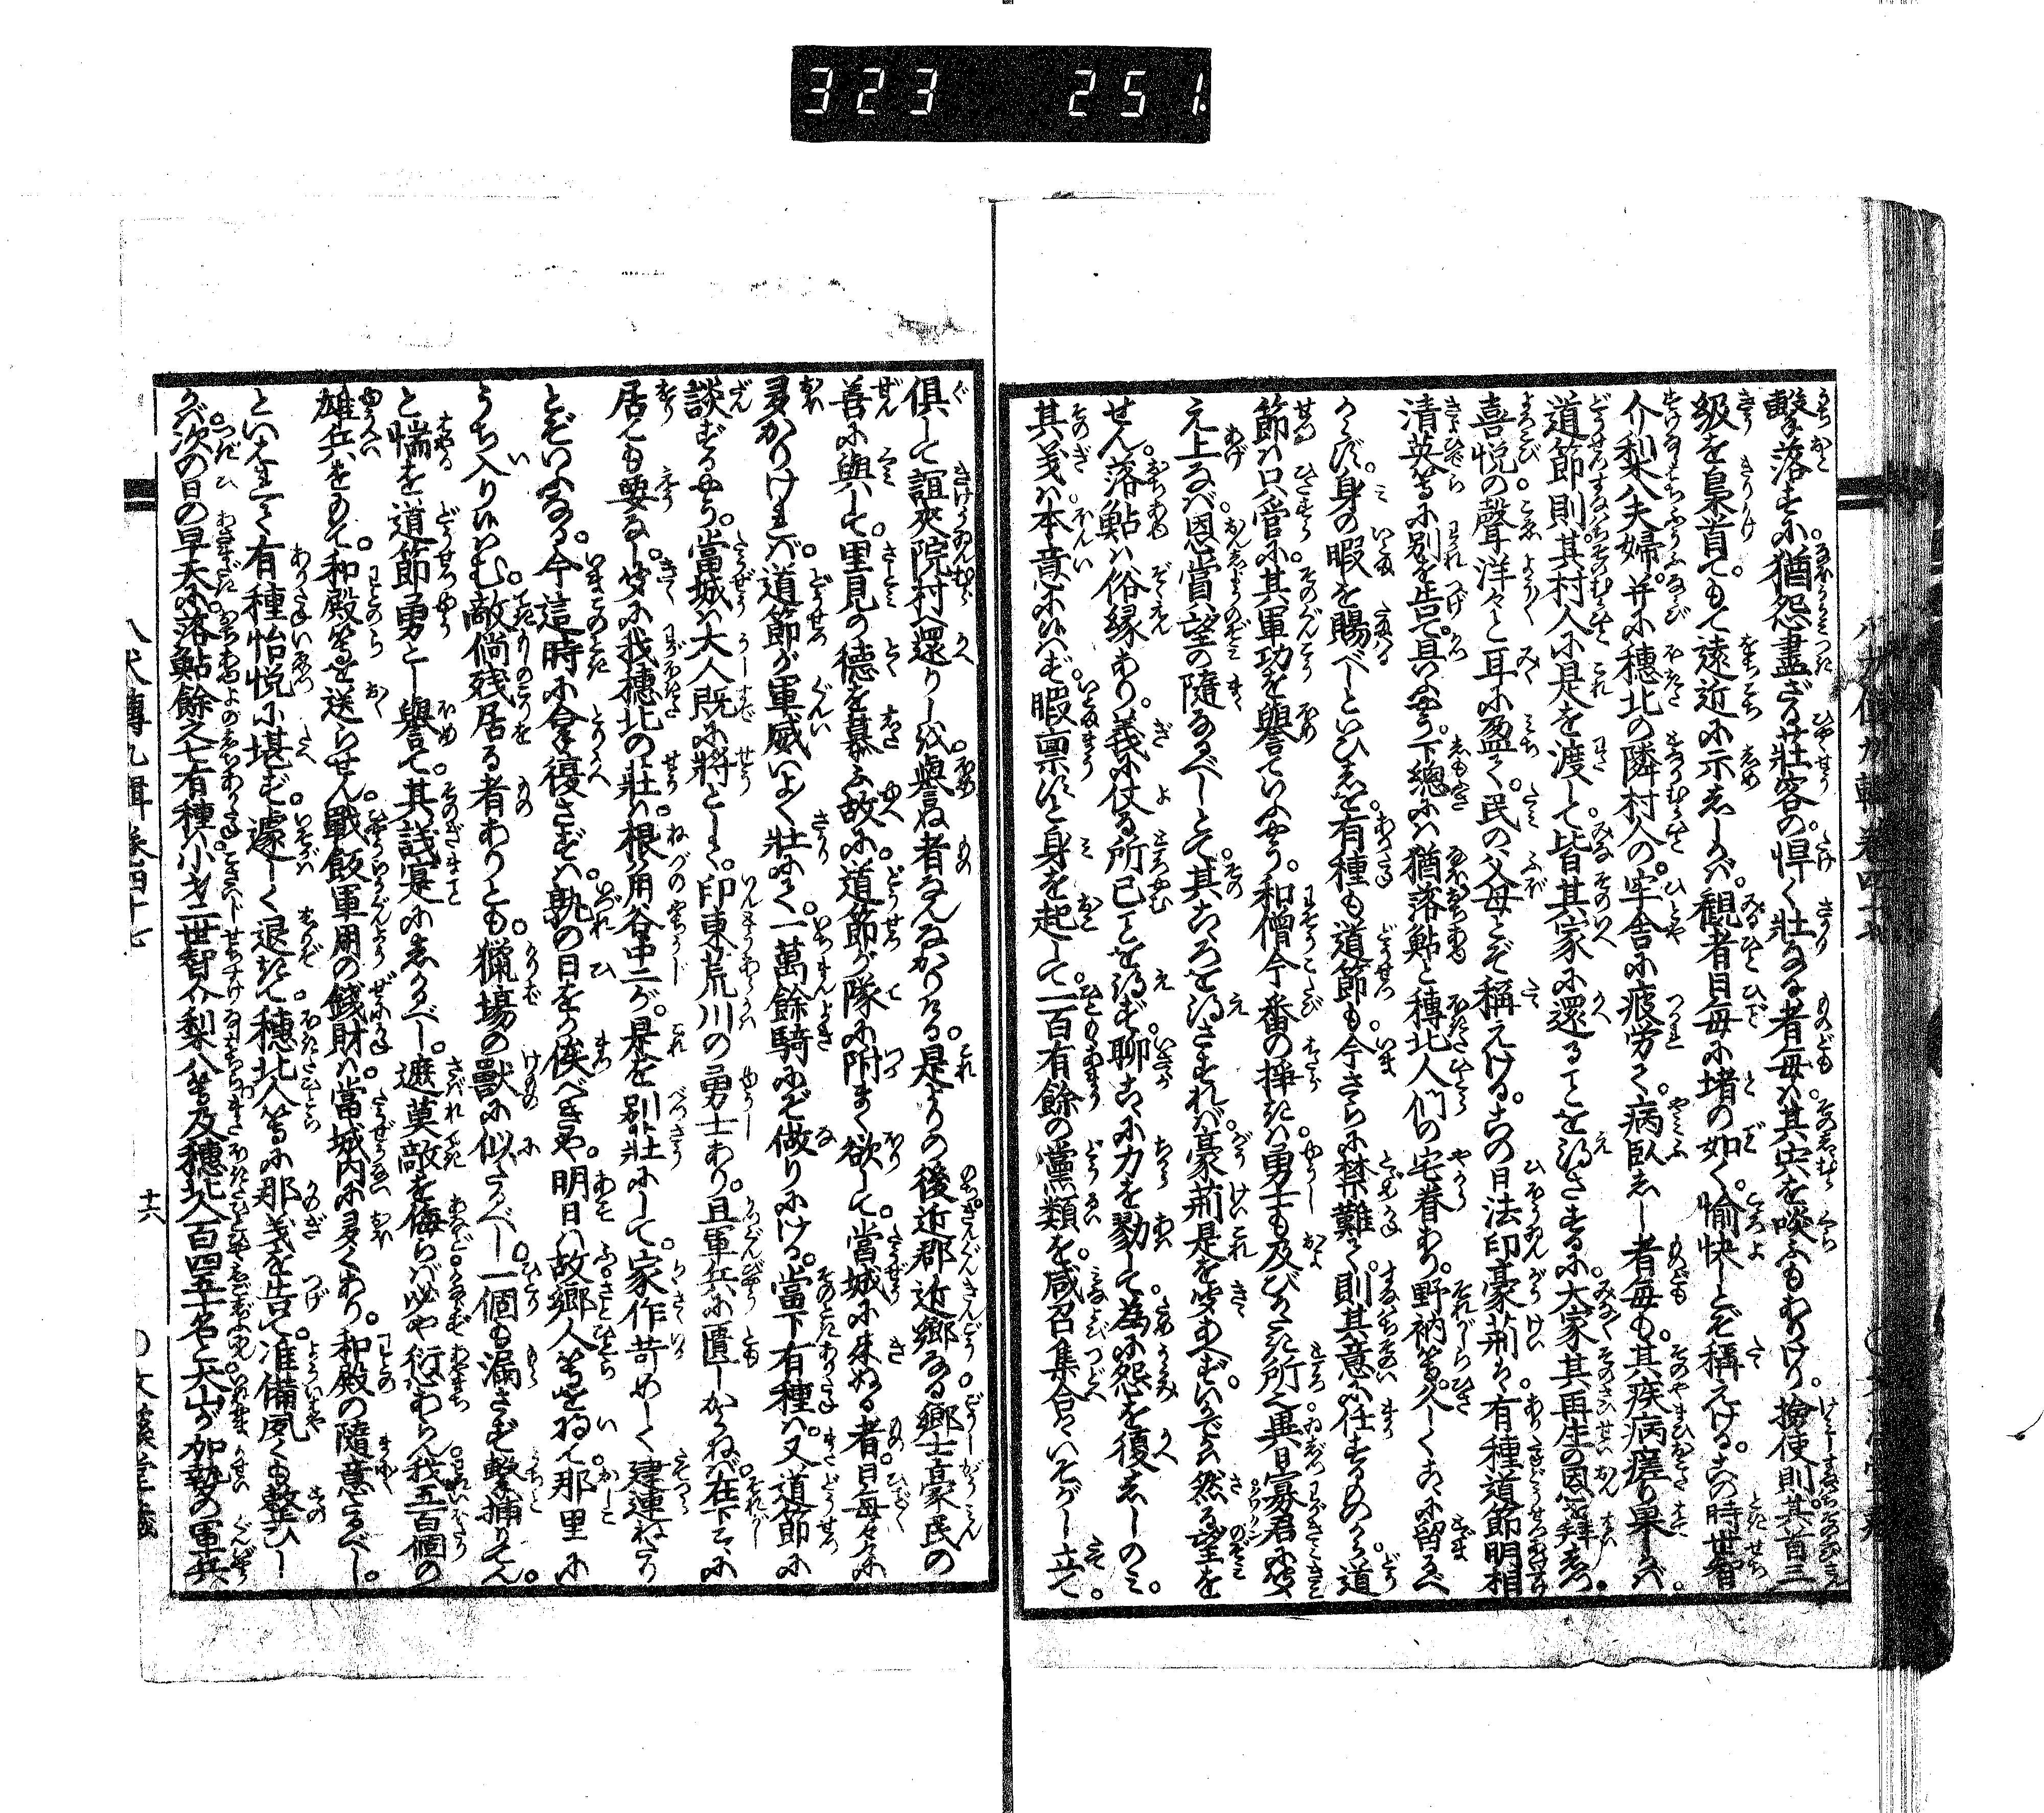 323 251.
撃落すに。猶怨盡ざる壮客の。悍く壮なる者毎は其宍を啖ふもありけり。撿使則其首三
級を梟首て。もて遠近に示ししかば。觀者日毎に堵の如く。愉快とぞ稱えける。この時世智
介梨八夫婦。并に穗北の隣村人の。牢舎に疲労て。病臥しし者毎も。其疾病瘥り果しかば。
道節則。其村人に是を渡して。皆其家に還ることを得させるに。大家其再生の恩を拜しつ。
喜悦の聲洋々と耳に盈て。民の父母とぞ稱えける。この日法印豪荊は。有種道節明相
清英等に別を告て。且いふやう。下總には猶落鮎と穗北人們の宅眷あり。野衲等。久しくこゝに留るべ
くもあらず。身の暇を賜べしといひしを。有種も道節も。今さらに禁難て。則其意に任するのみ。道
節は只管に其軍功を譽ていふやう。和僧今番の挊きは。勇士も及びかたき所之。異日寡君に聞
え上なば。恩賞望の隨なるべしとて。其こゝろを得さすれば。豪荊是を聞あへず。いかでか然る望を
せん。落鮎は俗縁あり。義に仗る所已ことを得ず。聊こゝに力を勠して。為に怨を復ししのみ。
其義は本意に候はず。暇稟すと身を起して。一百有餘の黨類を。咸召集合々いそがし立て。
俱して誼夾院村へ還りしを。譽ね者はなかりける。是よりの後近郡近郷なる。郷士豪民の
善に與して。里見の德を慕ふ故に。道節が隊に附まく欲して。當城に來ぬる者。日毎々々に
多かりければ。道節が軍威いよゝ壮にて。一萬餘騎にぞ做りにける。當下有種は。又道節に
談ずるやう。當城は大人既に將として。印東荒川の勇士あり。且軍兵に匱しからねば。在下こゝに
居ても要なし。聞に我穗北の莊は。根角谷中二が。是を別莊にして。家作苛めしく建連ねたり
とぞいふなる。今這時に合復さずは。孰の日をか俟べきや。明日は故郷人等を将て。那里に
うち入り候はむ。敵尚殘居る者ありとも。獵場の獸に似たるべし。一個も漏さず撃捕りてん。
と惴を道節勇とし譽て。其議寔にしかるべし。遮莫敵を侮らば。必や衍あらん。我五百個の
雄兵をもて。和殿等を送らせん。戰飯軍用の錢財は。當城内に多くあり。和殿の隨意たるべし。
といはれて有種怡悦に堪ず。遽しく退きて。穗北人等に那義を告て。准備夙くも整ひし
かば。次の日の早天に。落鮎餘之七有種は。小才二世智介梨八等。及穗北人百四五十名と。天山が加勢の軍兵
八犬傳九輯卷四十七
十六
〇文溪堂藏